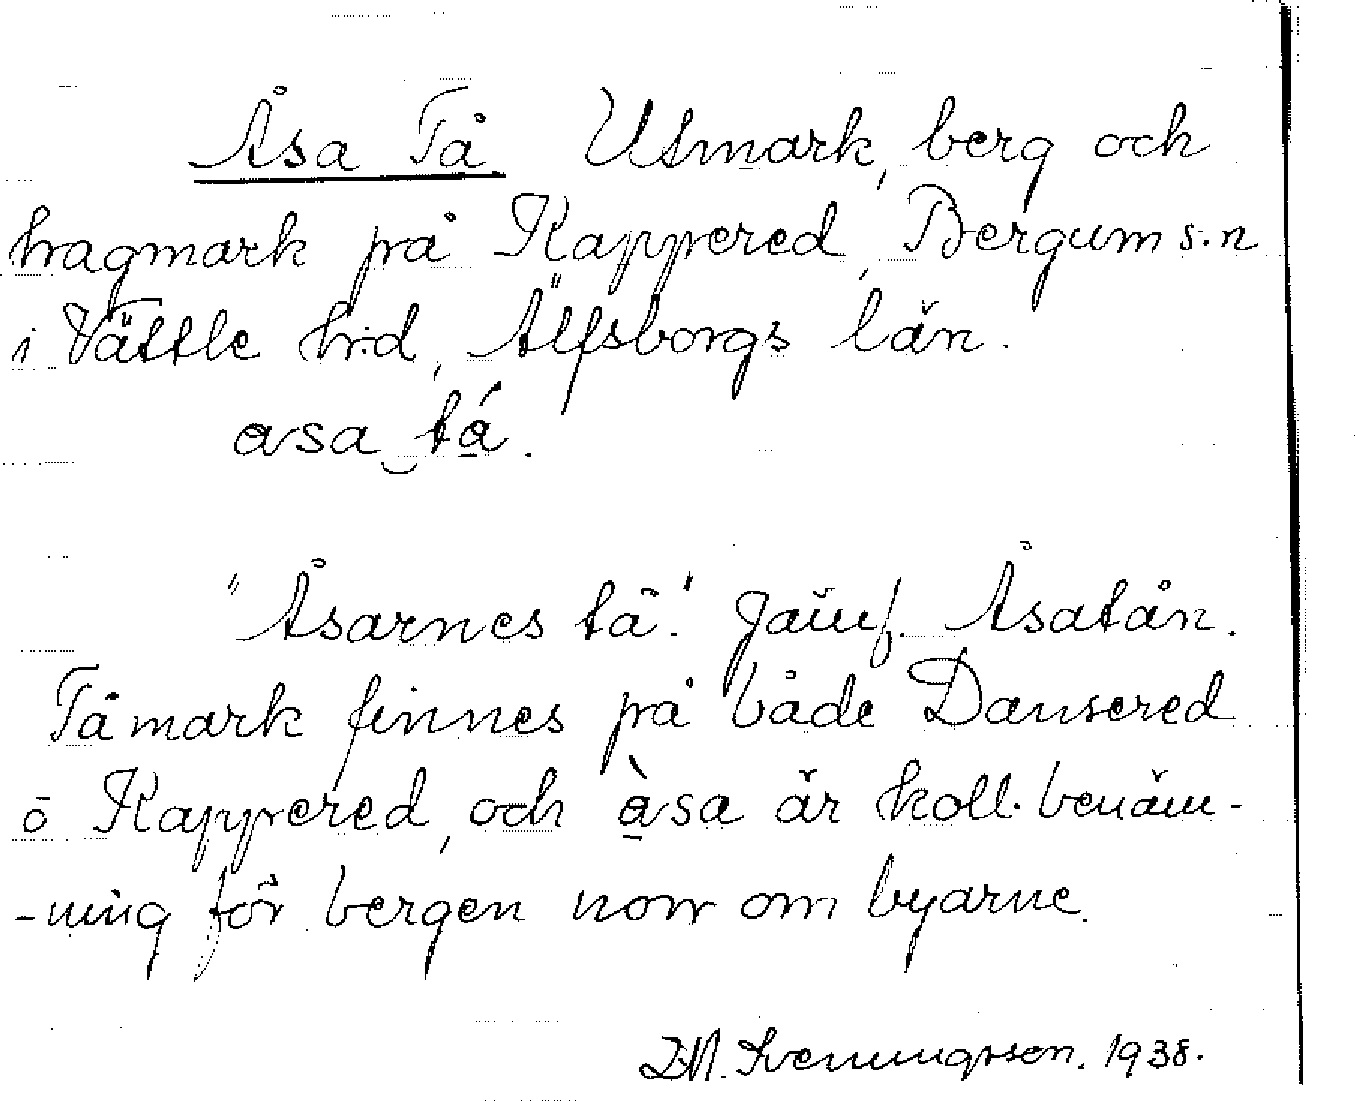 Åsa Tå Utmark, berg och
hagmark på Kappered, Bergum s:n
i Vättle h:d, Älfsborgs län.
asa tá.
"Åsarnes tå". Jämf. Åsatån.
Tåmark finnes på både Dansered
o Kappered, och àsa är koll. benäm-
-ning för bergen norr om byarne.
Svenungsson. 1938.